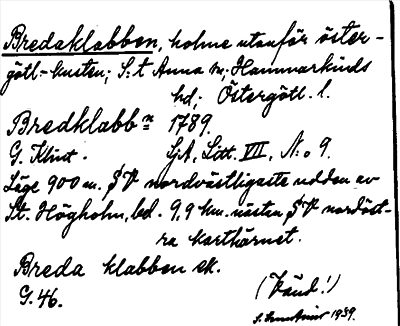 Bredaklabben, holme utanför öster-
götl-kusten; S:t Anna sn; Hammarkinds
hd; Östergötl. l.
Bredklabbn 1789.
G. Klint. SjA, Litt. VIII, N:o 9.
Läge 900 m. SV nordvästligaste udden av
St. Högholm, bel. 9,9 km. nästan SV nordöst-
ra karthörnet.
Breda klabben ek.
G. 46. (Känd!)
1939.